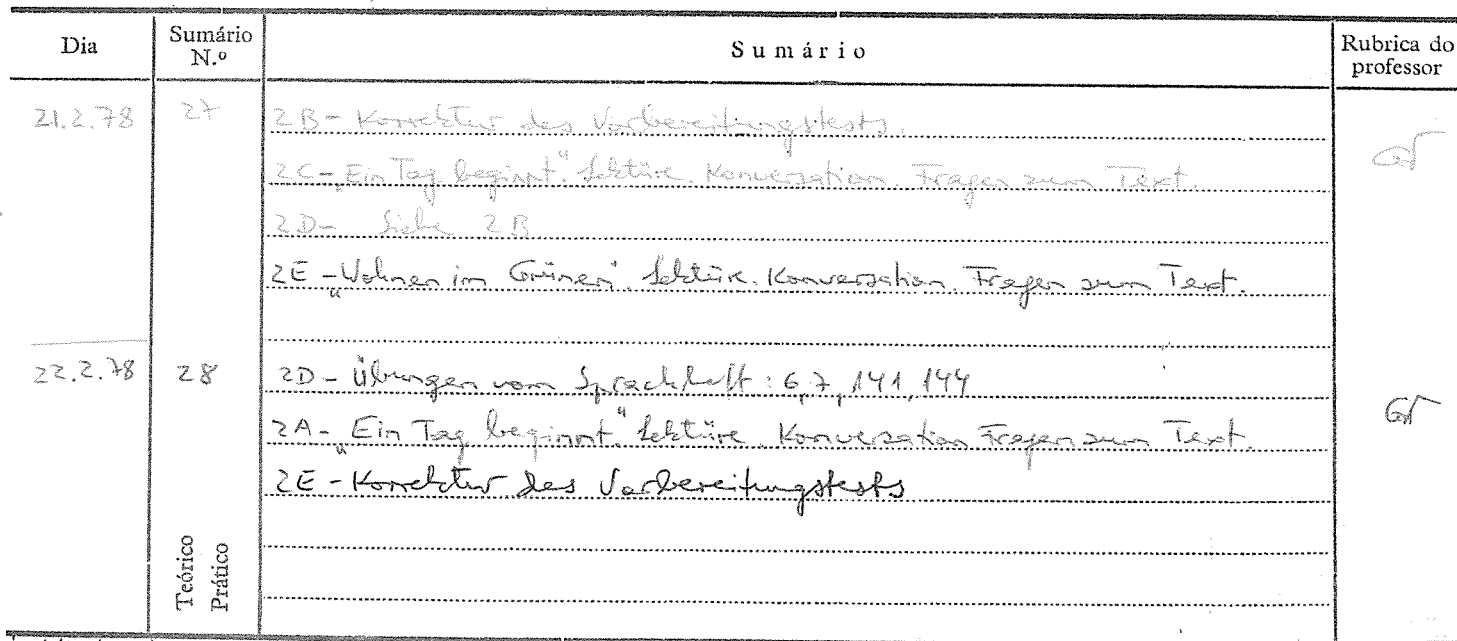 Dia
Sumário N.º
Sumário
Rubrica do professor
21.2.78 27 2B - Korrektur des Vorbereitungstests.
2C - „Ein Tag beginnt". Lektüre. Konversation. Fragen zum Text.
2D - Siehe 2B
2E - „Wohnen im Grünen". Lektüre. Konversation. Fragen zum Text.
22.2.78 28 2D - Übungen vom Sprachheft: 6, 7, 141, 144
2A - „Ein Tag beginnt". Lektüre. Konversation. Fragen zum Text.
2E - Korrektur des Vorbereitungstests
Teórico
Prático